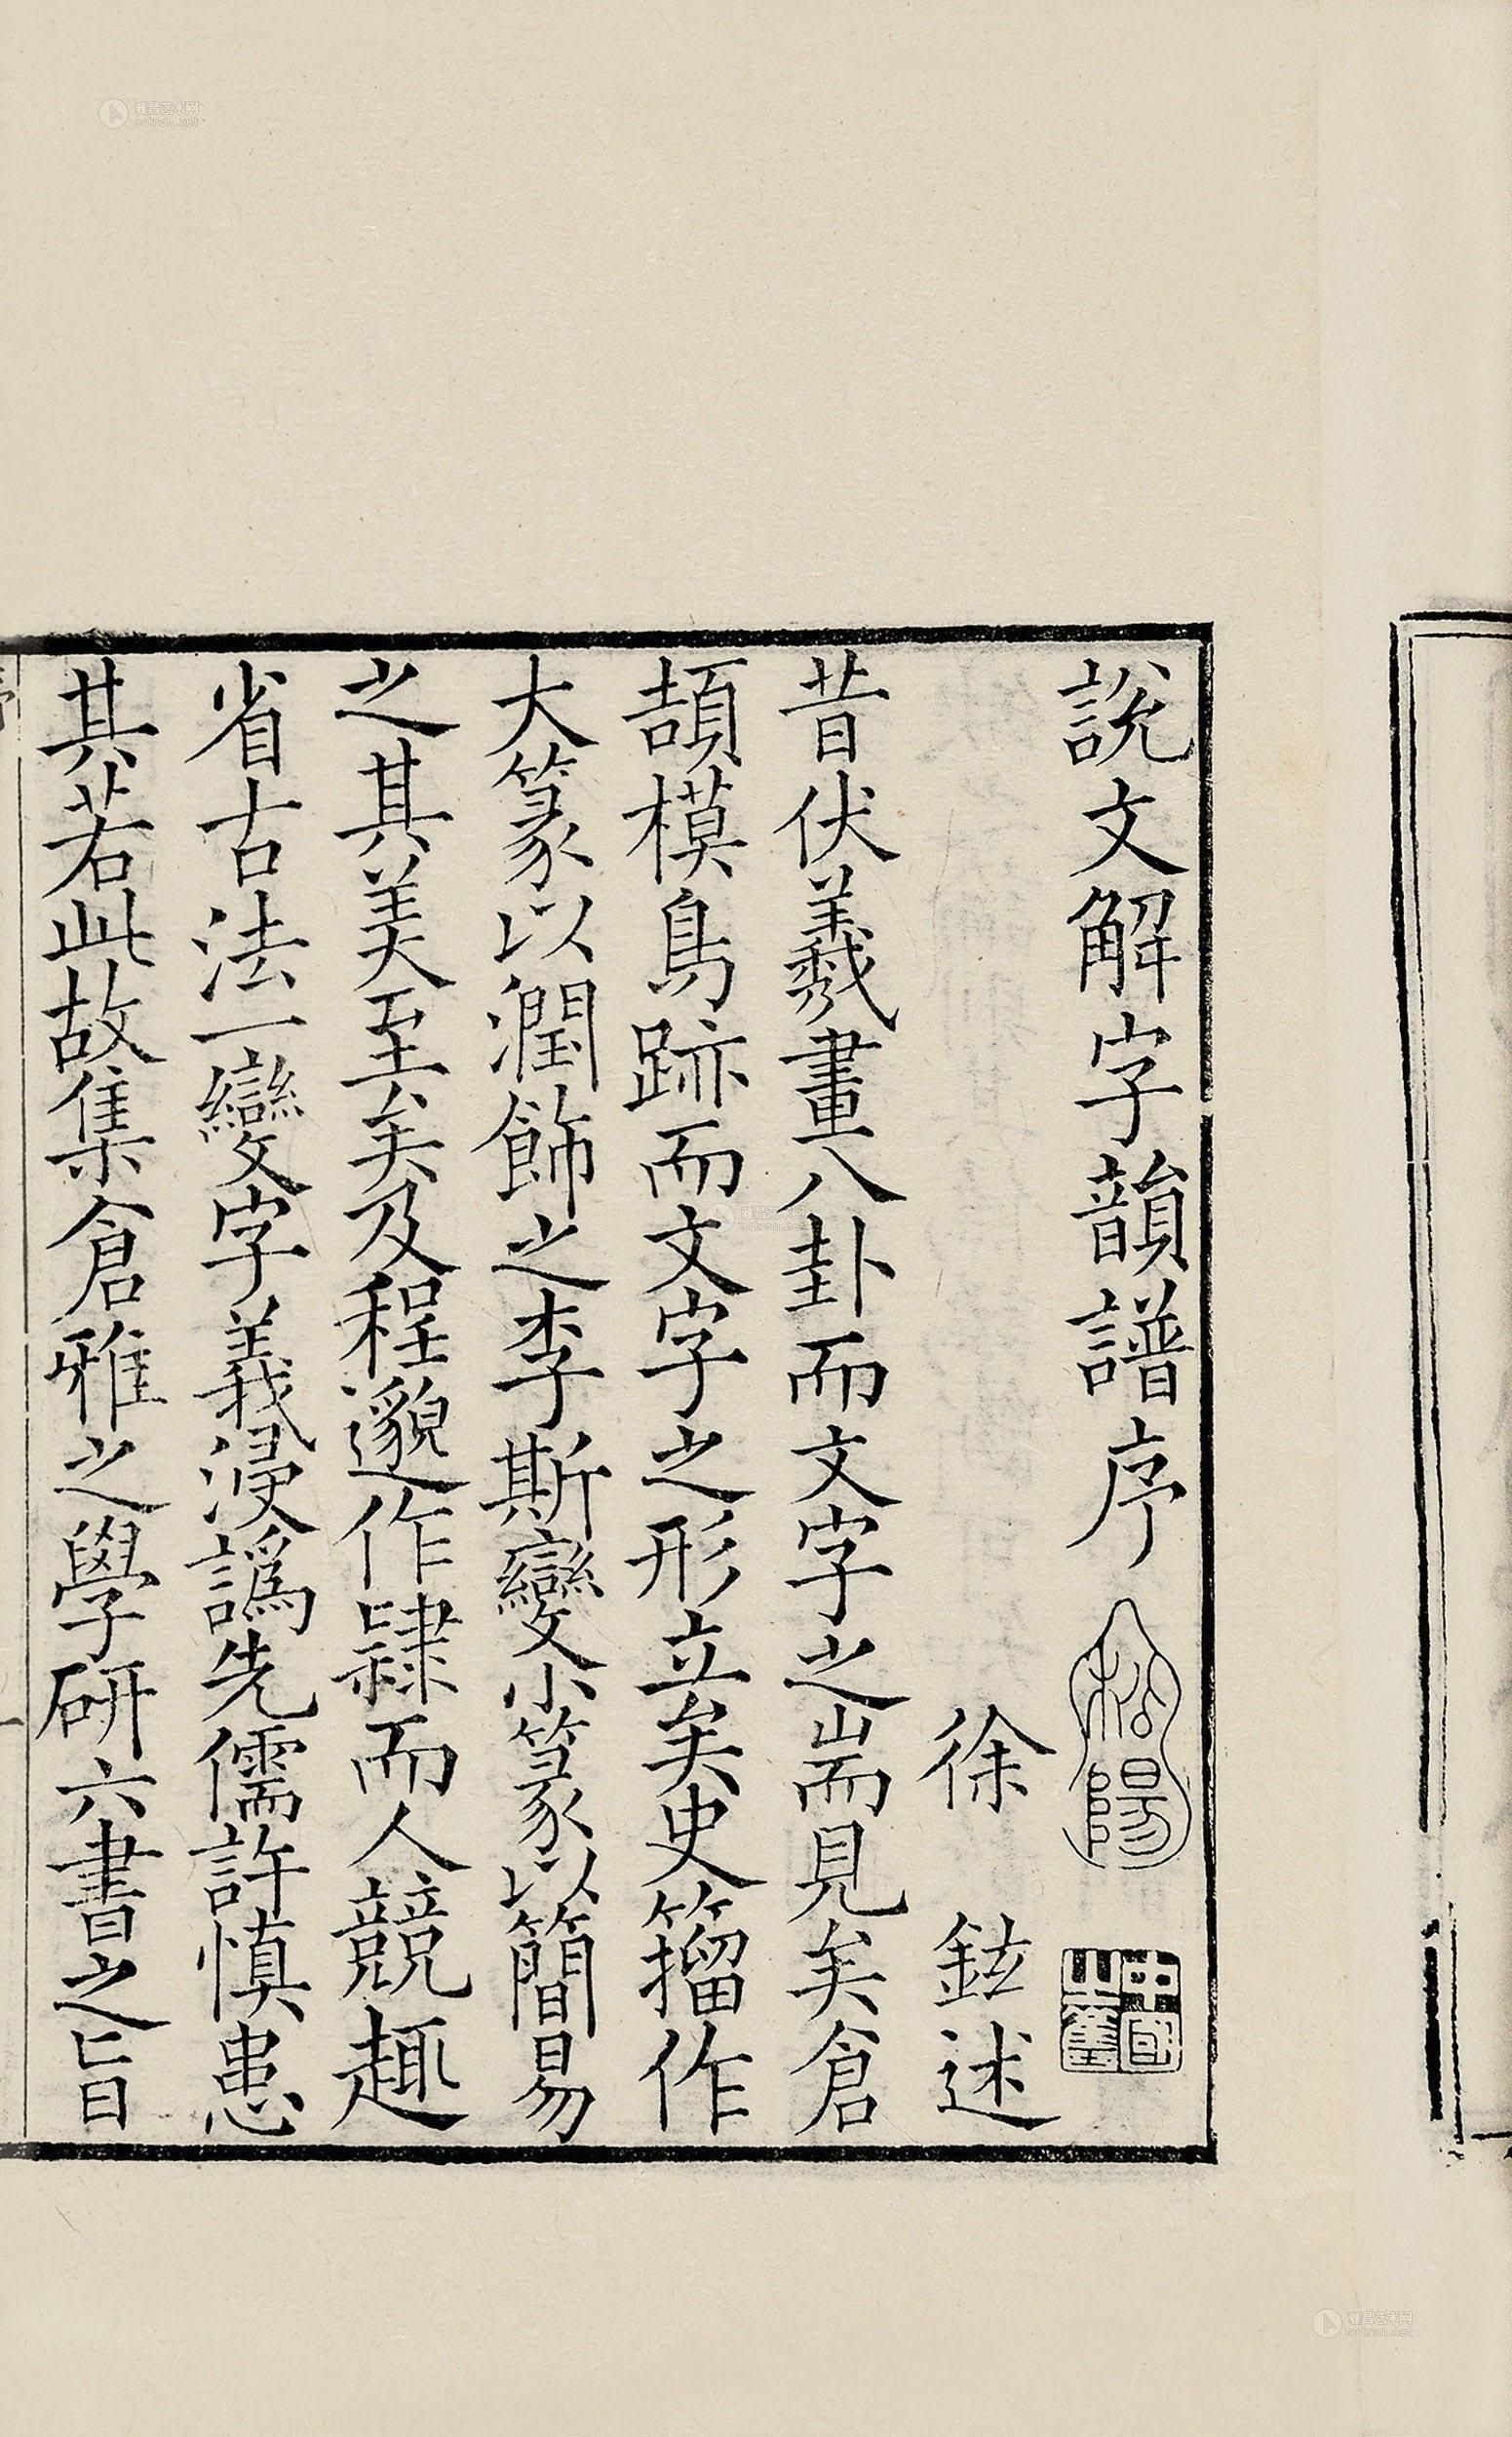 說文解字韻譜序
徐鉉述
昔伏羲畫八卦而文字之耑見矣倉
頡模鳥跡而文字之形立矣史籀作
大篆以潤飾之李斯變小篆以簡易
之其美至矣及程邈作隷而人競趣
省古法一變字義浸譌先儒許慎患
其若此故集倉雅之學研六書之旨